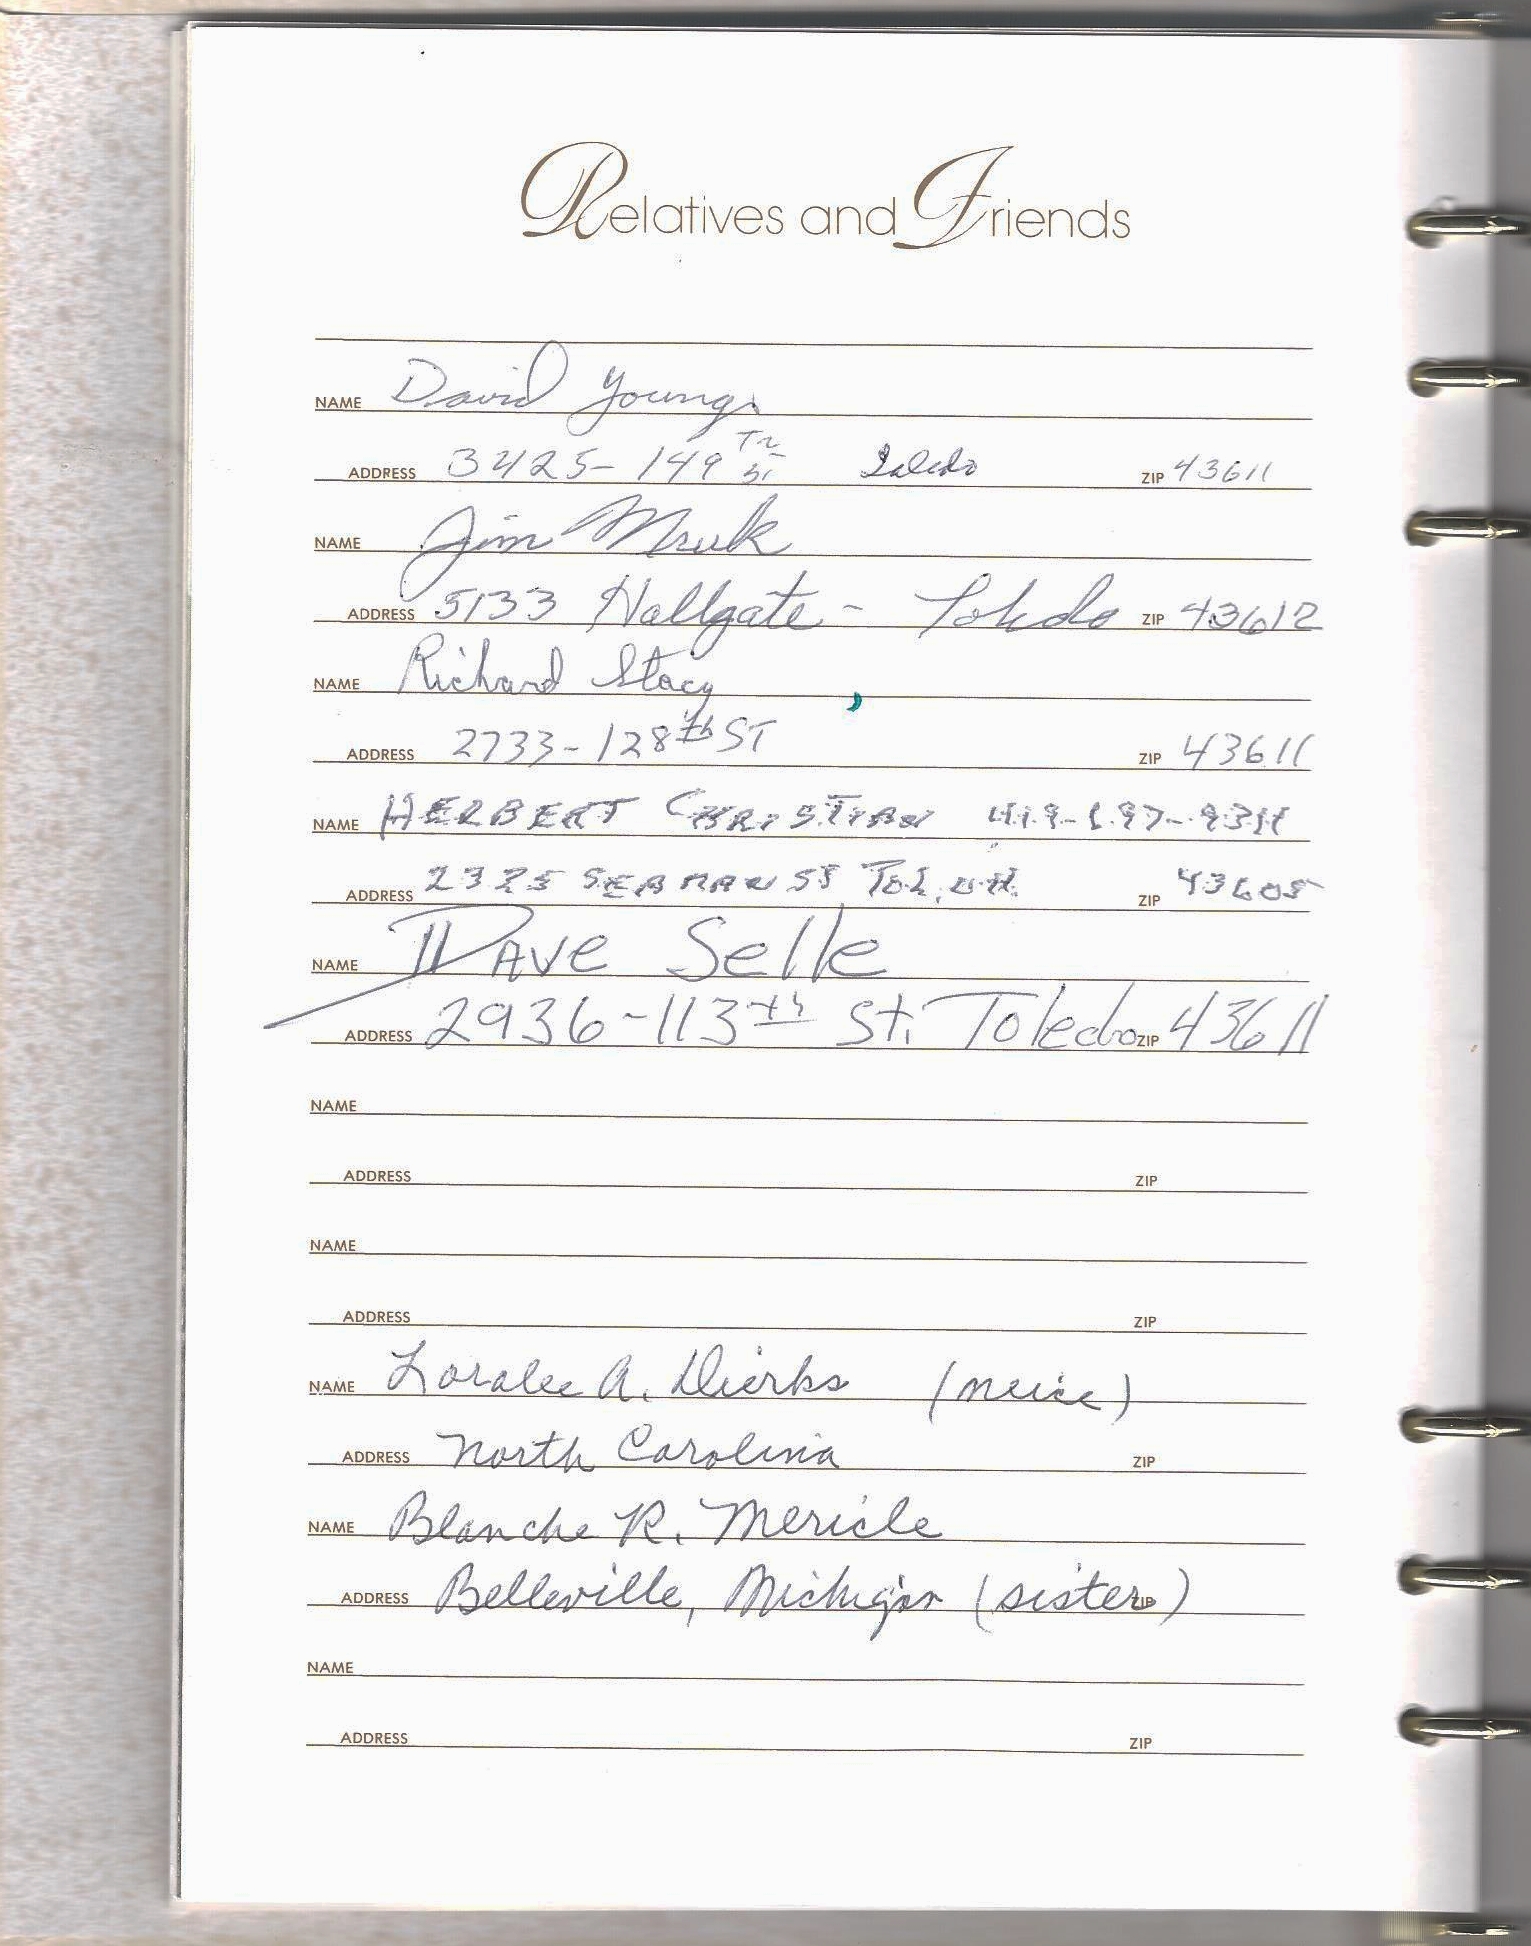 Relatives and Friends
NAME David Youngs
ADDRESS 3425-149 Th St Toledo ZIP 43611
NAME Jim Mruk
ADDRESS 5133 Hallgate - Toledo ZIP 43612
NAME Richard Stacy
ADDRESS 2733-128th ST ZIP 43611
NAME HERBERT CHRISTIAN
ADDRESS 2325 SEAMAN ST TOL, OH ZIP 43605
NAME DAVE Selle
ADDRESS 2936-113th St. Toledo ZIP 43611
NAME
ADDRESS ZIP
NAME
ADDRESS ZIP
NAME Loralee A. Dierks (neice)
ADDRESS North Carolina ZIP
NAME Blanche R. Mericle
ADDRESS Belleville, Michigan (sister) ZIP
NAME
ADDRESS ZIP